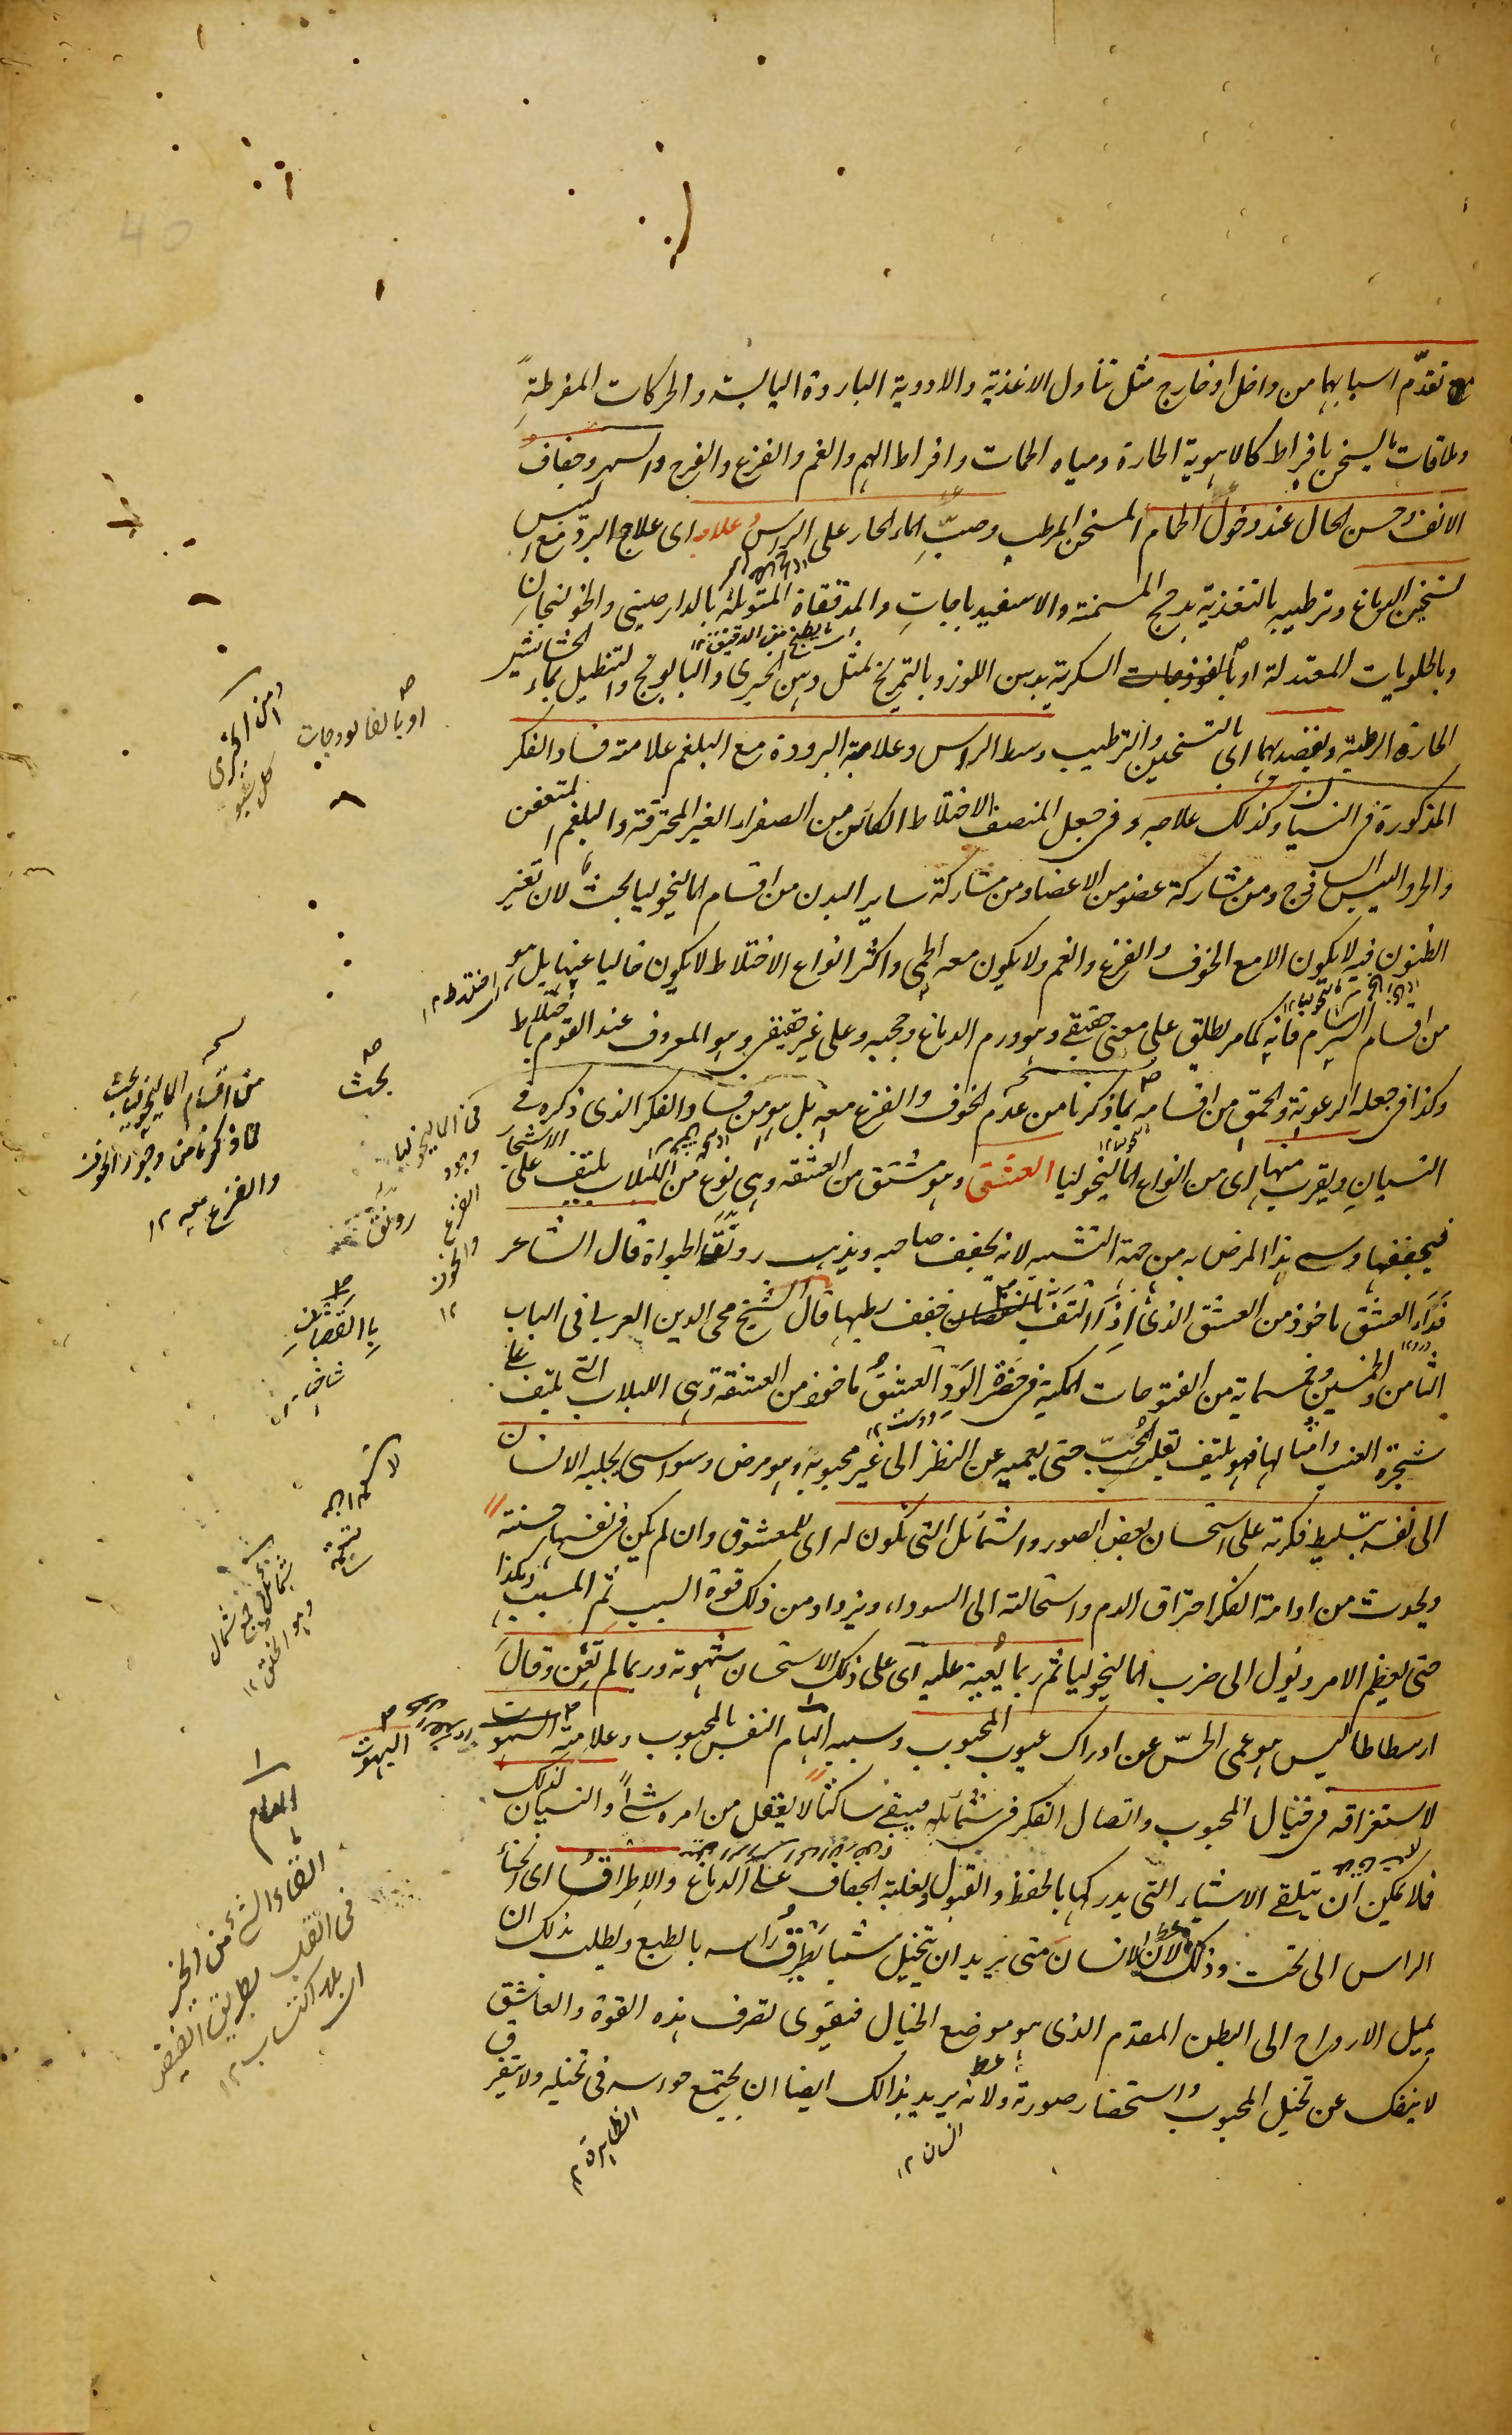 مع تقدّم اسبابهما من داخل او خارج مثل تناول الاغذية والادوية الباردة اليابسة والحركات المفرطةِ
وملاقات ما يسخن بافراط كالاهوية الحارة ومياه الحمات وافراط الهم والغم والفزع والفرح والسهر وجفاف
الانف وحسن الحال عند دخول الحمام المسخن المرطب وصبّ الماء الحار على الراس وعلاجه اى علاج البرد مع اليبس
تسخين الدماغ وترطيبه بالتغذية بدجج المسمنة والاسفيدباجاتِ والمدققاة المتوبلة بالدارصينى والخولنجان
وبالحلويات المعتدلة او بالفوذجات السكرية بدهن اللوز وبالتمريخ بمثل دهن الخيرى والبابونج والتنطيل بماء الحشائش
الحارة الرطبة ويقصد بهما اى بالتسخين والترطيب وسط الراس وعلامة البرودة مع البلغم علامة فساد الفكر
المذكورة فى النسيان وكذلك علاجه وفى جعل المنصف الاختلاط الكائن من الصفراء الغير المحترقة والبلغم المتعفن
والحر واليبس الساذج ومن مشاركة عضو من الاعضاء ومن مشاركة ساير البدن من اقسام الماليخوليا بحث لان تغير
الظنون فيه لا يكون الا مع الخوف والفزع والغم ولا يكون معه الحمى واكثر انواع الاختلاط لا يكون خاليا عنها بل هو
من اقسام السرسام فانه كما مر يطلق على معنى حقيقى وهو ورم الدماغ وحجبه وعلى غير حقيقى وهو المعروف عند القوم باختلاط
وكذا فى جعله الرعونة والحمق من اقسامه بما ذكرنا من عدم الخوف والفزع معه بل هو من فساد الفكر الذى ذكره فى
النسيان ويقرب منها اى من انواع الماليخوليا العشق وهو مشتق من العشقه وهى نوع من اللبلاب يلتف على الاشجار
فيجففها وسمى هذا المرض به من جهة التشبيه لانه يجفف صاحبه ويذهب رونق الحيواة قال الشاعر
فداء العشق ماخوذ من العشق الذى اذا التف بالغصان جفف رطبها قال الشيخ محى الدين العربى فى الباب
الثامن والخمسين وخمسماية من الفتوحات المكية فى حضرة الودّ العشق ماخوذ من العشقة وهى اللبلاب التى يلتف على
شجرة العنب وامثالها فهو يلتف بقلب المُحِبّ حتى يعميه عن النظر الى غير محبوبه وهو مرض وسواسى يجلبه الانسان
الى نفسه بتسليط فكرته على استحسان بعض الصور والشمائل التى تكون له اى للمعشوق وان لم يكن فى نفسها حسنة
ويحدث من ادامة الفكر احتراق الدم واستحالته الى السوداء ويزداد من ذلك قوة السبب ثم المسبب وهكذا
حتى يعظم الامر ويئول الى ضرب الماليخوليا ثم ربما يُعينه عليه اى على ذلك الاستحسان شهوته وربما لم تُعِن وقال
ارسطاطاليس هو عمى الحسّ عن ادراك عيوب المحبوب وسببه الهام النفس بالمحبوب وعلامته السهوت
لاستغراقه فى خيال المحبوب واتصال الفكر فى شمائله فيبقى ساكتا لا يعقل من امره شيئاً والنسيان لذلك
فلا يمكن ان يتلقى الاشياء التى يدركها بالحفظ والقبول ولغلبة الجفاف على الدماغ والاطراق اى انحناء
الراس الى تحت وذلك لان الانسان متى يريد ان يتخيل شيئا يطرق راسه بالطبع ويطلب بذلك ان
يميل الارواح الى البطن المقدم الذى هو موضع الخيال فيقوى تصرف هذه القوة والعاشق
لا ينفك عن تخيل المحبوب واستحضار صورته ولانه يريد بذالك ايضا ان يجتمع حواسه فى تخيله ولا يتفرق
الظاهرة ١٢
انسان ١٢
او بالفالوذجات
دهن الخيرى
كل شبو
بحث
من اقسام الماليخوليا بحث
لما ذكرنا من وجود الخوف
والفزع معه ١٢
فى الماليخوليا
وجود
الفزع
والخوف
١٢
رونق
البهوت
القاء الشئ من الخير
فى القلب بطريق الفيض
اى بلا اكتساب ١٢